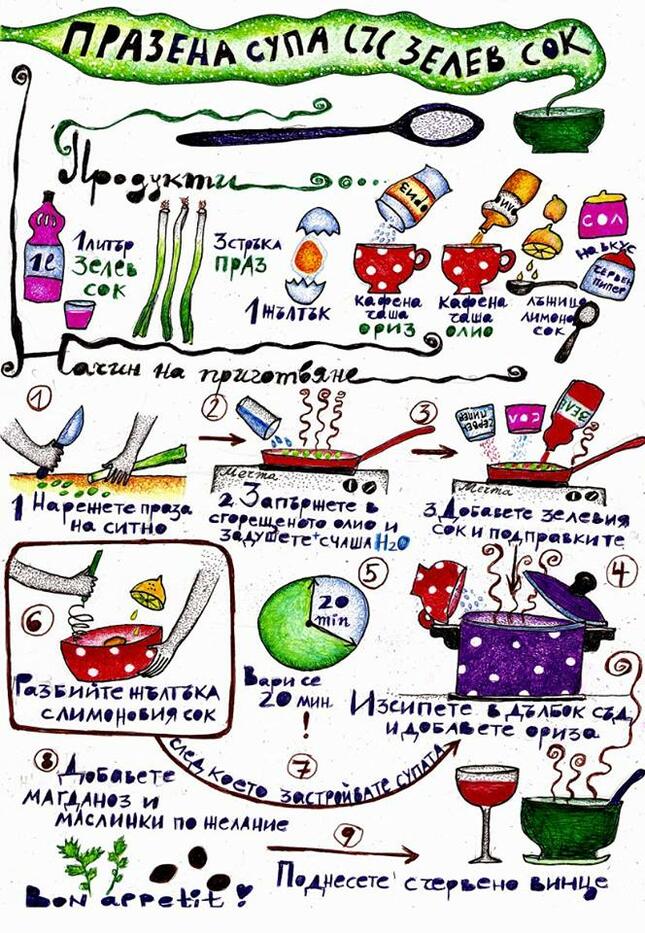 ПРАЗЕНА СУПА СЪС ЗЕЛЕВ СОК
Продукти
1л
1 литър
зелев
сок
3 стръка
праз
1 жълтък
ориз
кафена
чаша
ориз
олио
кафена
чаша
олио
лъжица
лимонов
сок
СОЛ
на вкус
червен
пипер
Начин на приготвяне
1
1 Нарежете праза
на ситно
2
Мечта
2. Запържете в
сгорещеното олио и
задушете + с чаша H2O
3
червен
пипер
СОЛ
ЗЕЛЕ
Мечта
3. Добавете зелевия
сок и подправките
4
Изсипете в дълбок съд
и добавете ориза
5
20
min
Вари се
20 мин.
!
6
Разбийте жълтъка
с лимоновия сок
7
след което застройвате супата
8
Добавете
магданоз и
маслинки по желание
9
Поднесете с червено винце
Bon appetit!